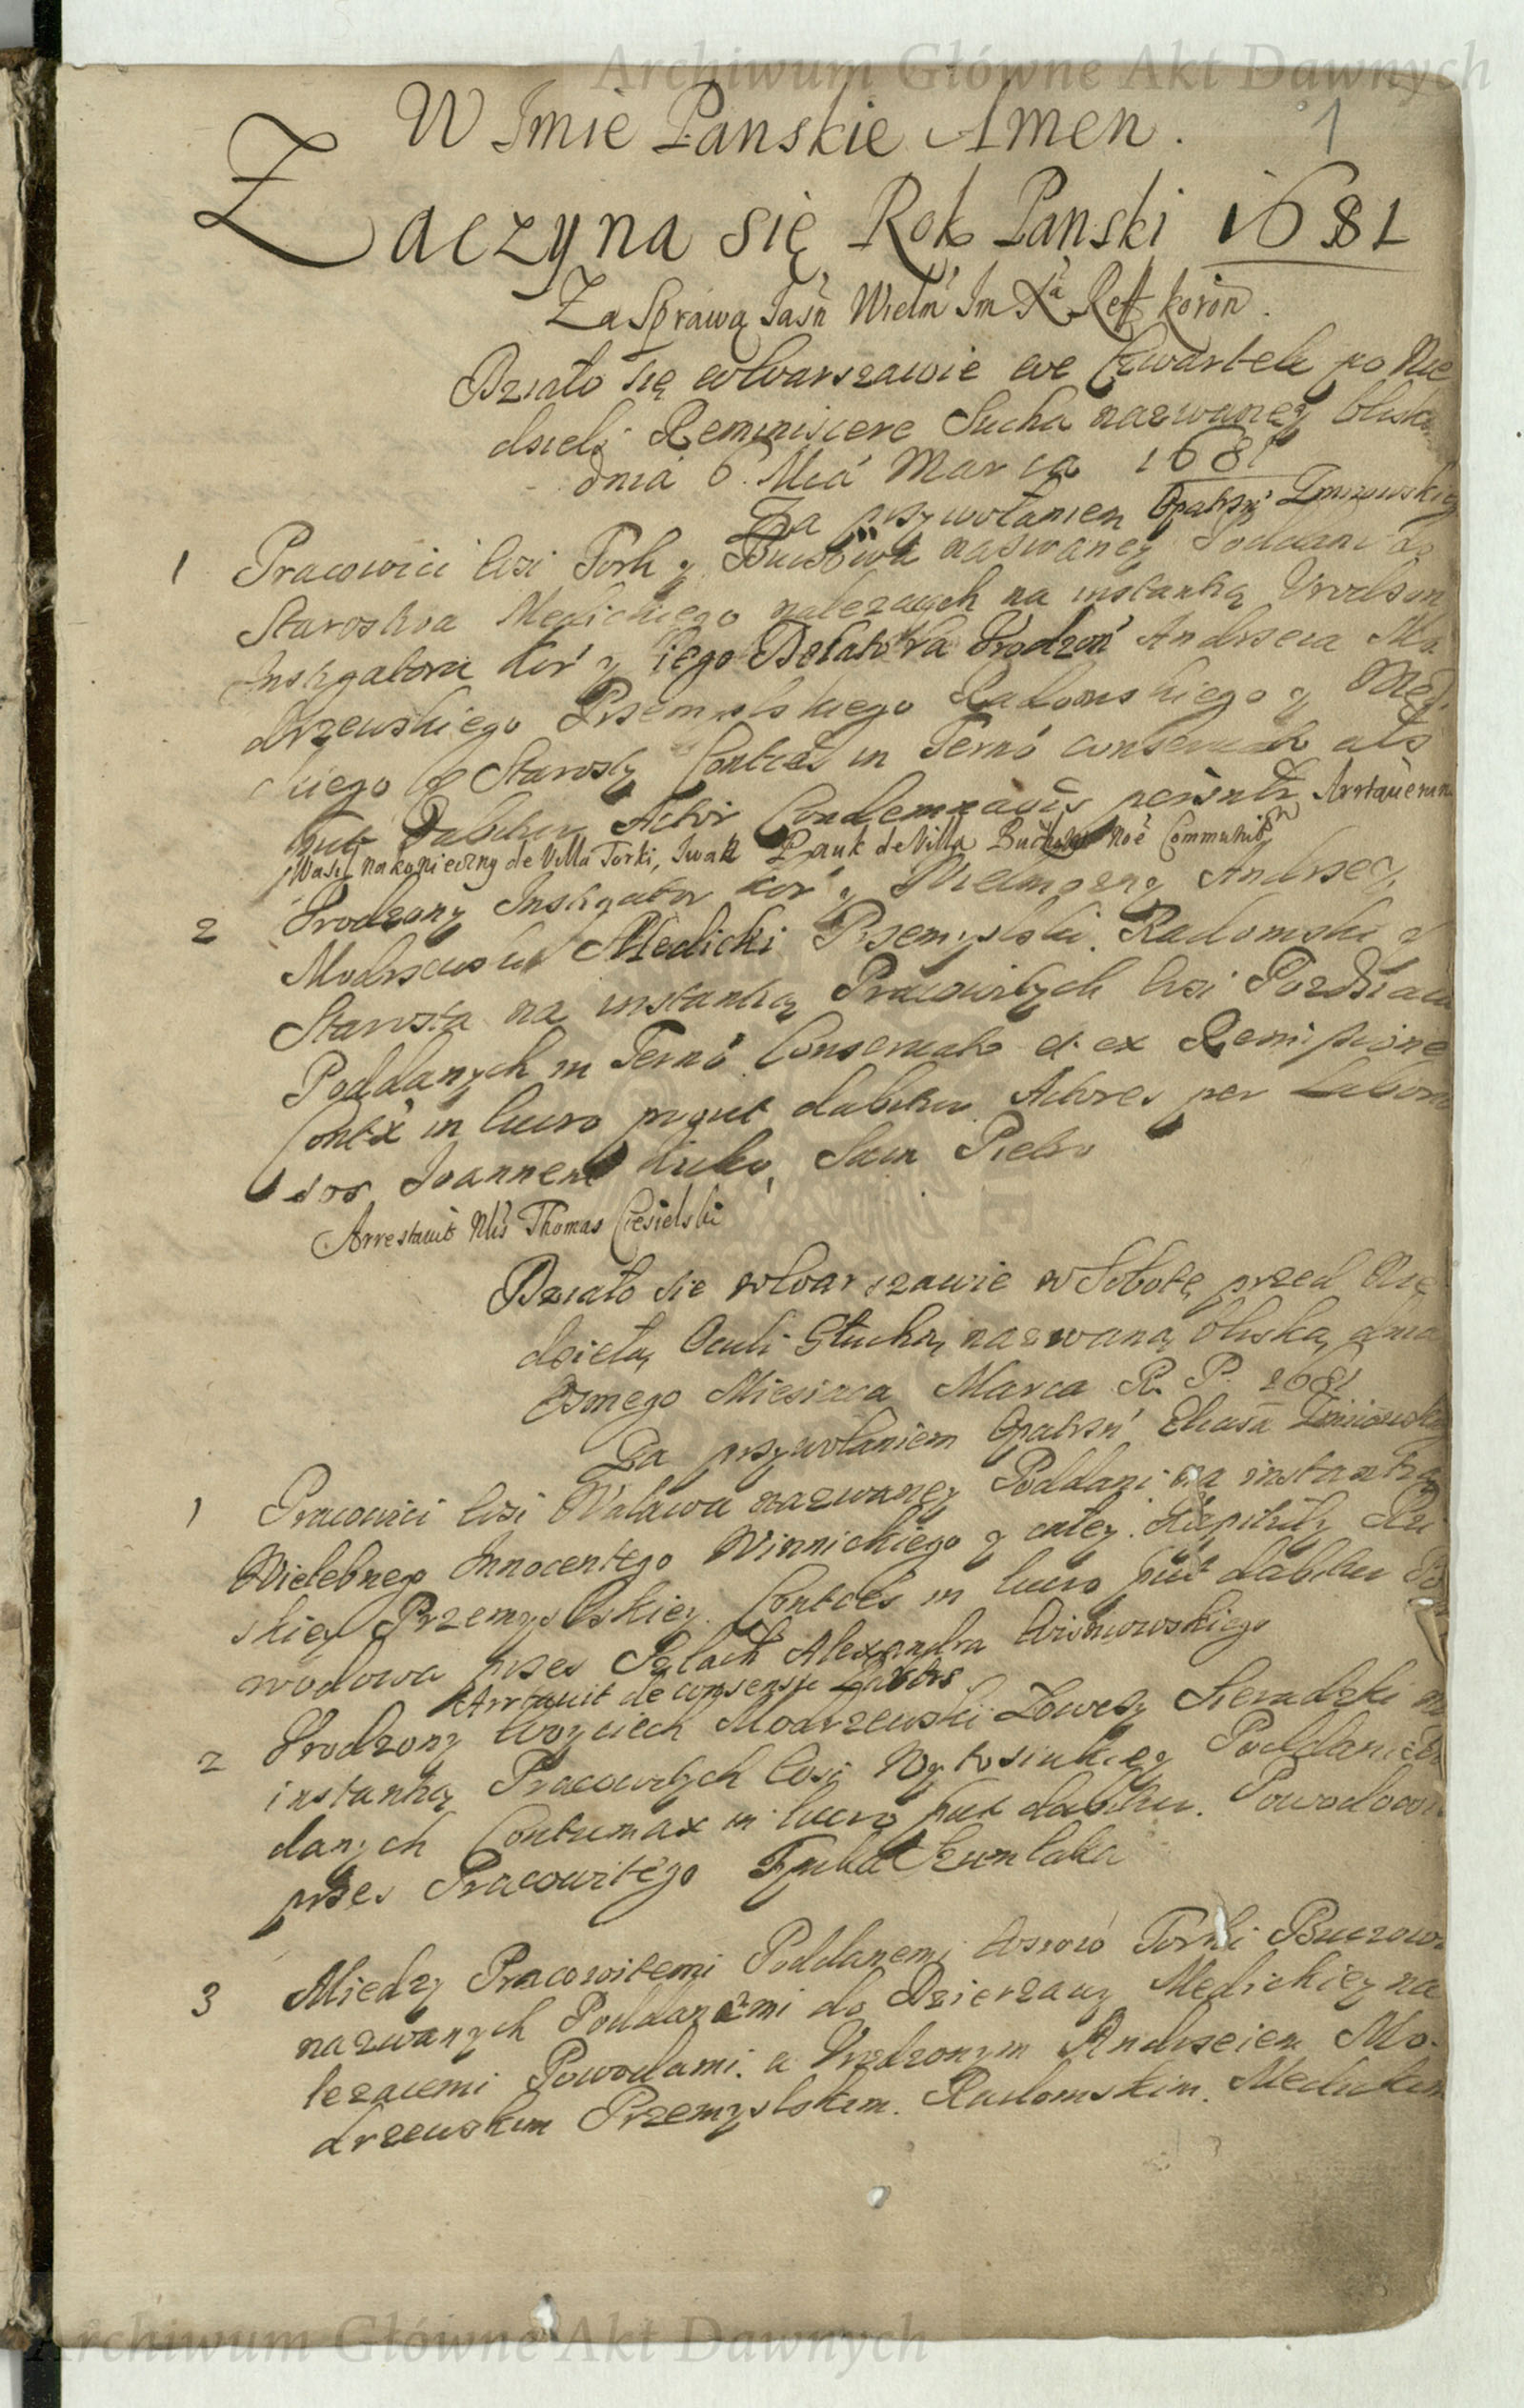 Archiwum Główne Akt Dawnych
1
W Imie Panskie Amen.
Zaczyna się Rok Panski 1681
Za Sprawą Jaśń Wielm Im Xa Reff koron.
Działo się w Warszawie we Czwartek po Nie
dzieli Reminiscere Sucha nazwaney blisko
dnia 6 Mca Marca 1681
Za przywołaniem Opatrzn
1 Pracowici Wsi Tork y nazwaney Poddani do
Starostwa Medickiego nalezących na instantią Vrodzon
Instigatora Kor y iego Delatora Vrodzon Andrzeia Mo
drzewskiego Przemyslskiego Radomskiego y Me
ckiego Starosty Contces in Termo conservato als
put Dabitur Actor Condemnatis
Wasil nakonieczny de Villa Torki, Iwan Pauk de Villa noe Communit
2 Vrodzony Instigator Kor y Wielmozny Andrzey
Modrzewski Medicki Przemyslski Radomski y
Starosta na instantią Pracowitych Wsi
Poddanych in Termo Conservato et ex Remissione
Contx in lucro prout dabitur Actores per Labora
sos Joannem
Arrestavit Nlis Thomas Ciesielski
Działo sie w Warszawie w Sobotę przed Nie
dzielą Oculi Głuchą nazwaną bliską dnia
Osmego Miesiaca Marca R. P. 1681
Za przywołaniem Opatrzn Eliasza
1 Pracowici Wsi Walawa nazwaney Poddani na instantią
Wielebnego Innocentego Winnickiego y całey Kapituły
skiey Przemyslskiey. Contces in lucro put dabitur Po
wodowa przez Szlach Alexandra Wisniowskiego
Arrtavit de consensu
2 Vrodzony Woyciech Modrzewski Łowczy Sieradzki na
instantią Pracowitych Wsi Poddanych
danych Contumax in lucro put dabitur. Powodowi
przez Pracowitego
3 Miedzy Pracowitemi Poddanemi Torki Buczowa
nazwanych Poddanemi do Dzierzawy Medickiey na
lezacemi Powodami. a Vrodzonym Andrzeiem Mo-
drzewskim Przemyslskim. Radomskim. Medickim
Archiwum Główne Akt Dawnych